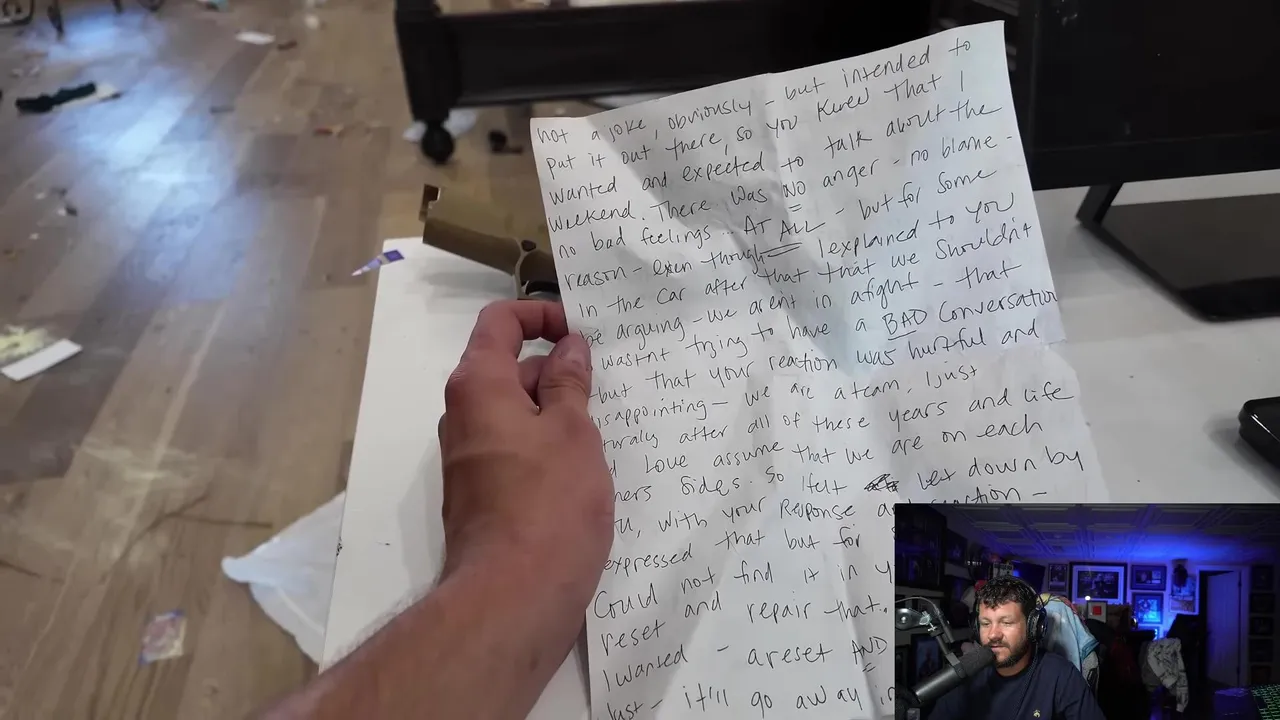 not a joke, obviously - but intended to
put it out there, so you knew that I
wanted and expected to talk about the
weekend. There was NO anger - no blame -
no bad feelings .. AT ALL - but for some
reason - even though I explained to you
in the car after that that we shouldn't
be arguing - we arent in a fight - that
wasnt trying to have a BAD conversation
- but that your reaction was hurtful and
disappointing - we are a team, I just
after all of these years and life
Love assume that we are on each
sides. So I felt let down by
with your Response
expressed that but for
Could not find it in
reset and repair that.
I wanted - a reset AND
it'll go away